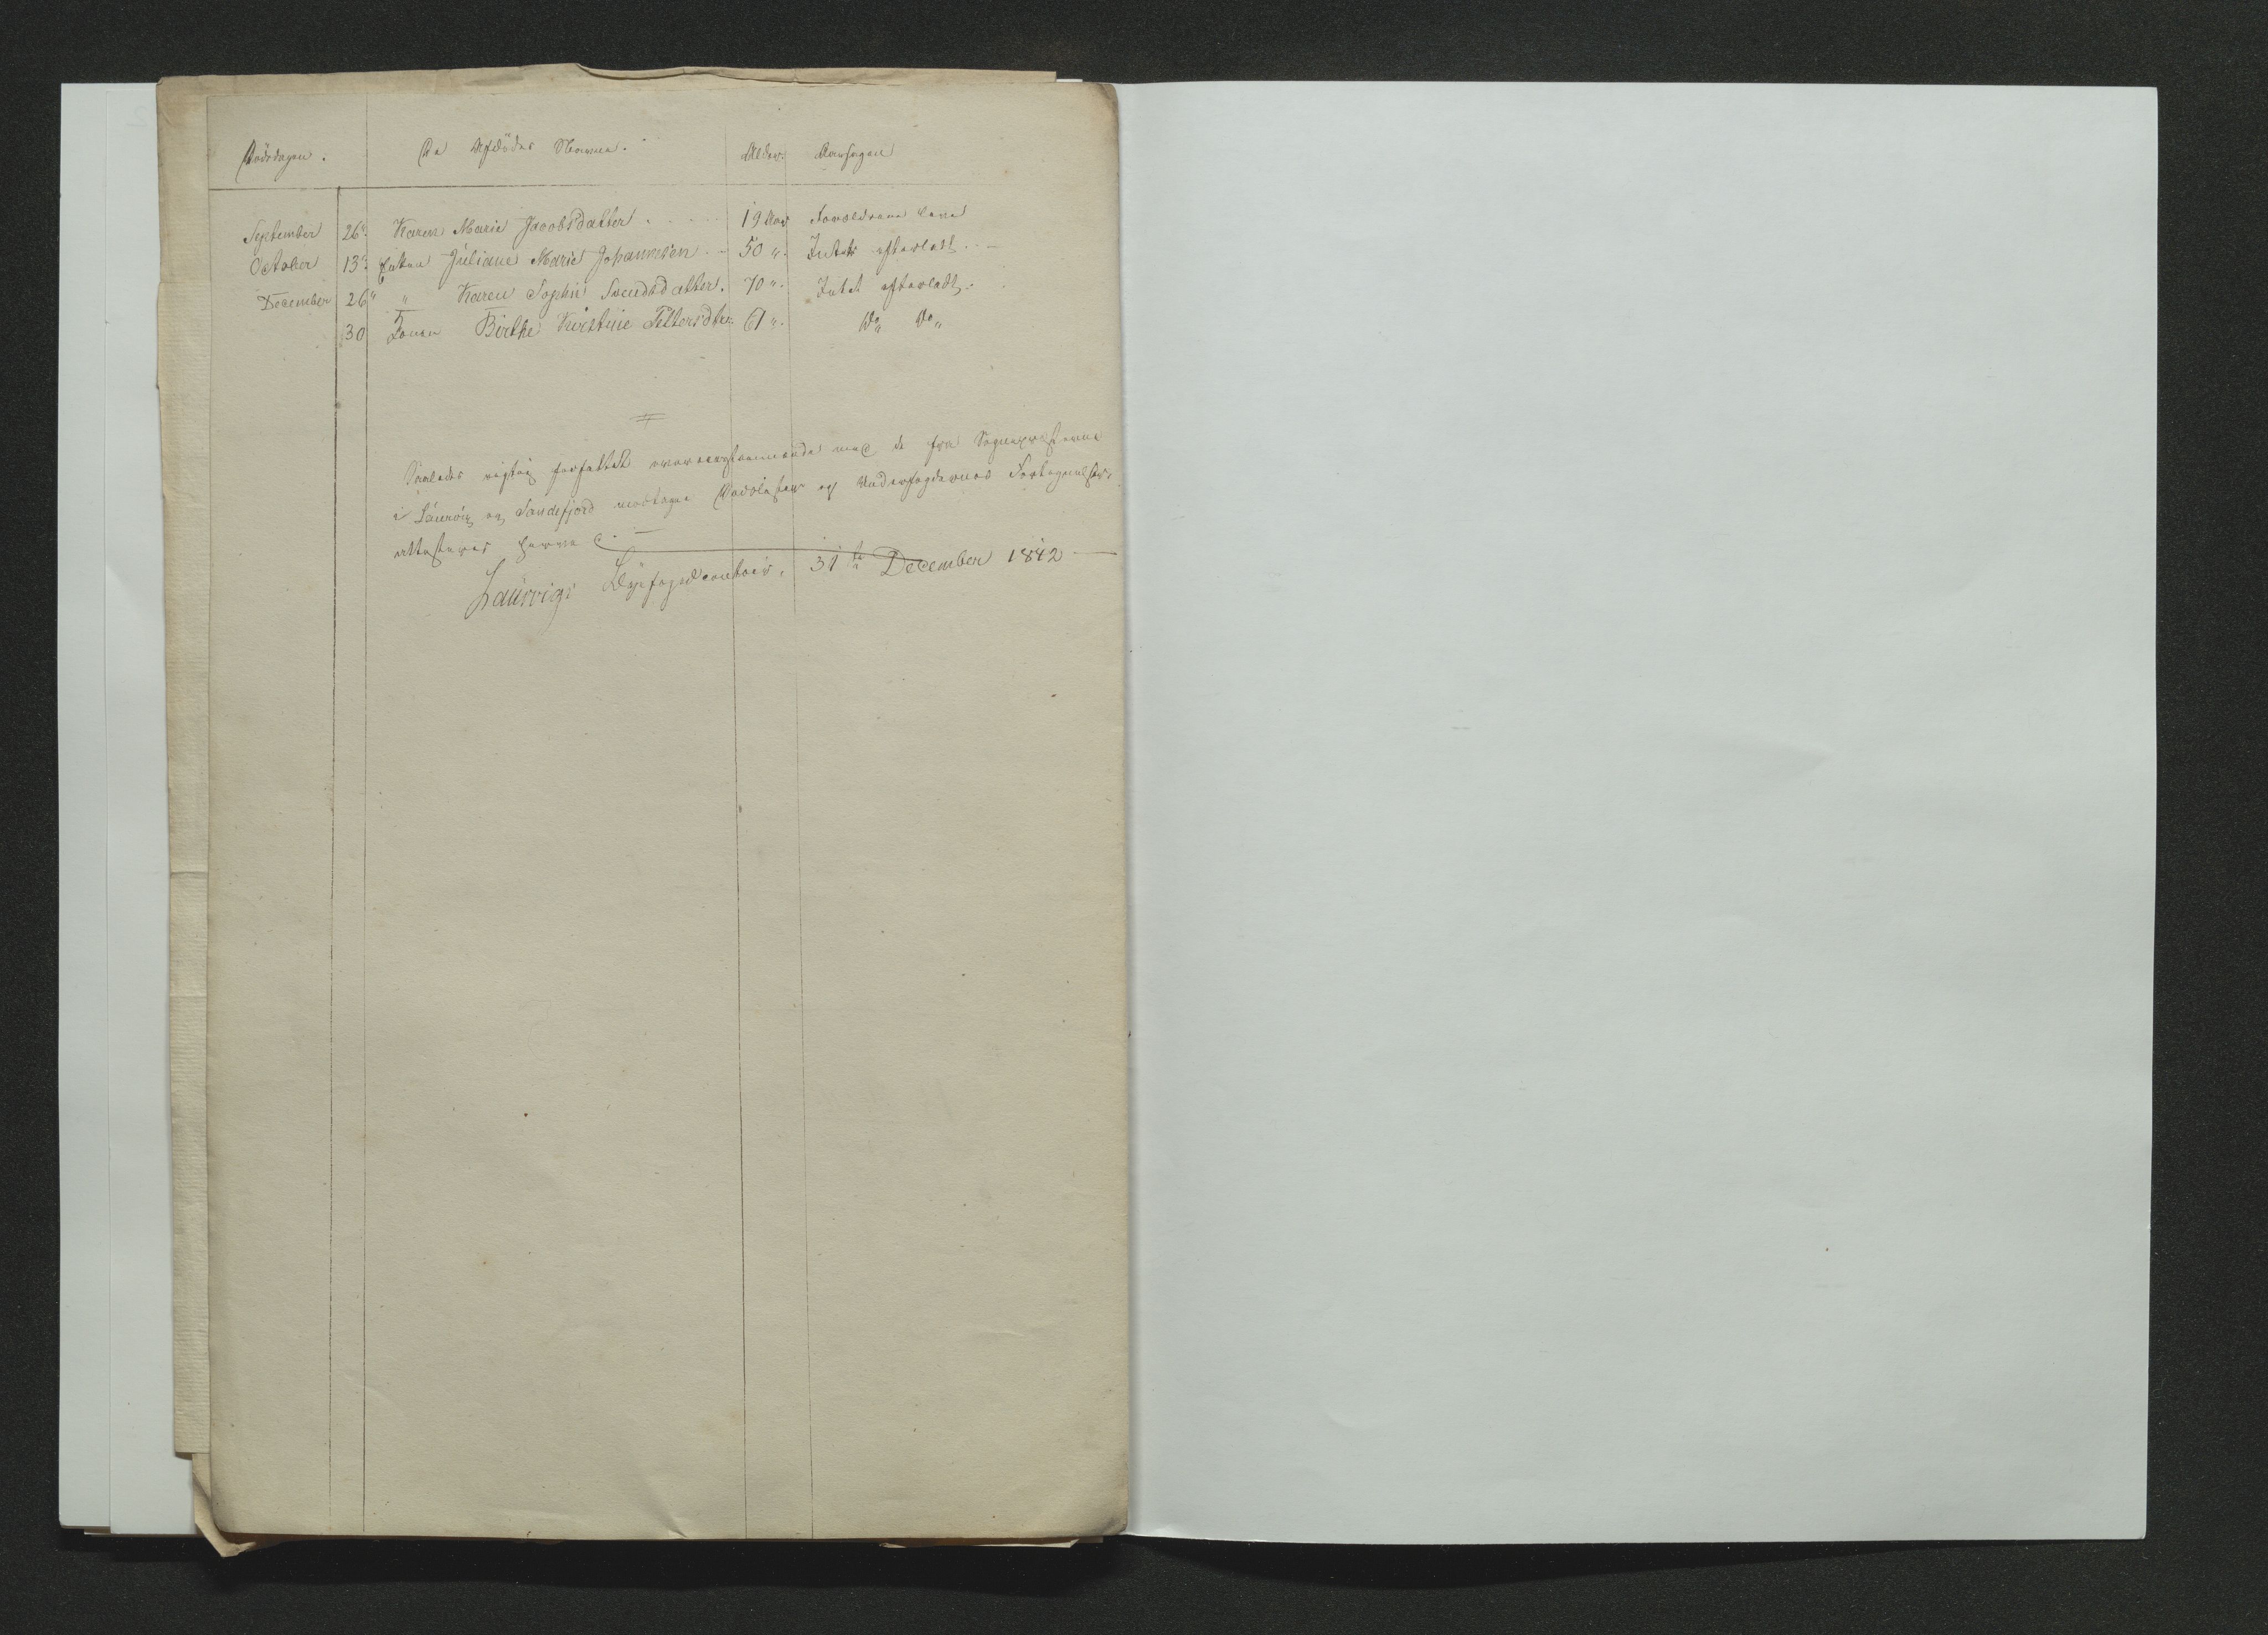 Dødsdagen. De Afdødes Navne. Alder. Aarsagen
September 26d Karen Marie Jacobsdatter . . . 19 Aar Forældrene leve
October 13d Enken Juliane Marie Johannesen . – 50 ". Intet efterladt . . –
December 26" " Karen Sophie Svendsdatter. 70 ". Intet efterladt. –
30 Konen Birthe Kirstine Pettersdtr. 61 ". Do" Do"
Saaledes rigtig forfattet overeensstemmende med de fra Sognepræsterne
i Laurvig og Sandefjord modtagne Dødslister og Underfogdernes Fortegnelser,
attesteres herved. –
Laurvigs Byefogedcontoir, 31te December 1842 –